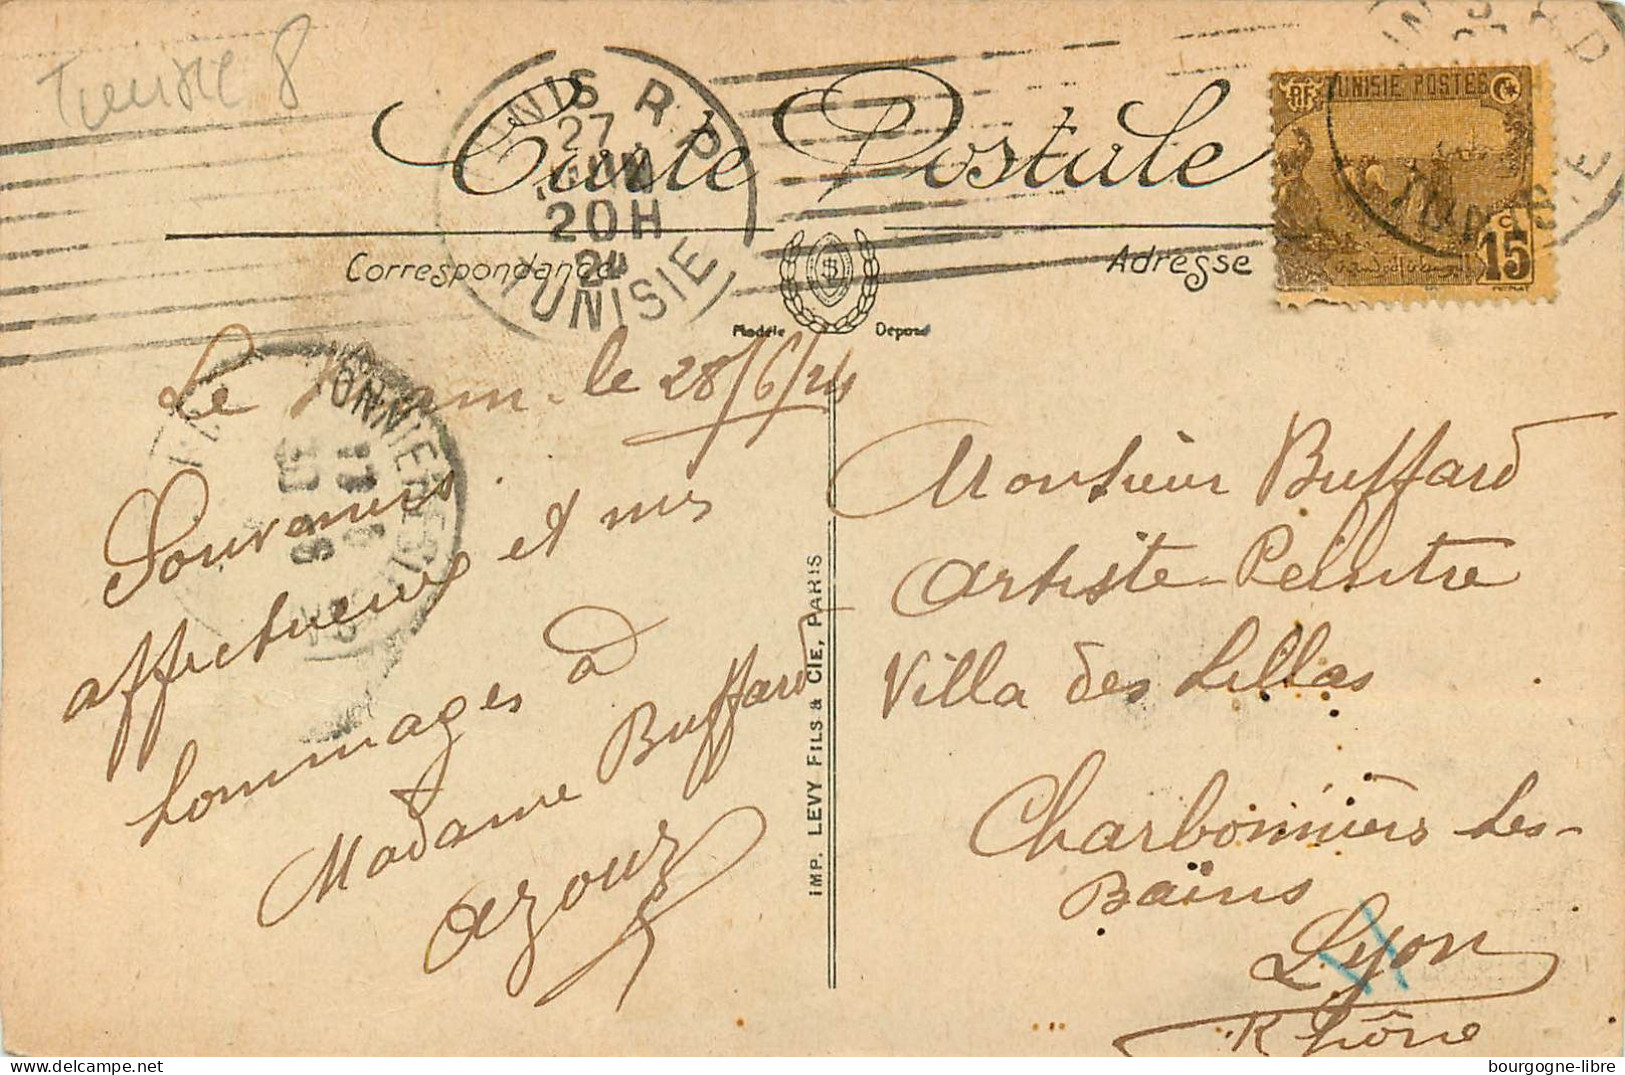 Tunisie 8
Carte Postale
TUNIS R.P.
27
20H
24
TUNISIE
RF TUNISIE POSTES
15 c
Correspondance
Adresse
Modèle Déposé
Le Kram. le 28/6/24
Souvenirs
affectueux et mes
hommages à
Madame Buffard
Azouz
IMP. LEVY FILS & CIE, PARIS
Monsieur Buffard
Artiste-Peintre
Villa des Lillas
Charbonnières les-
Bains
Lyon
Rhône
bourgogne-libre